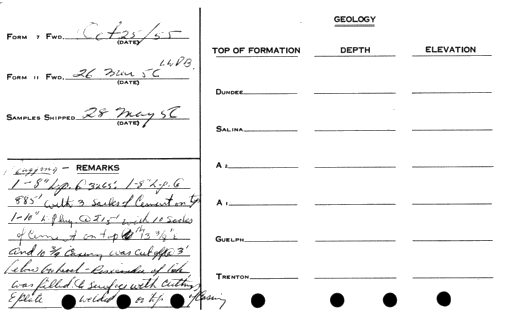 FORM 7 FWD. Oct 25/55
(DATE)
FORM 11 FWD. 26 Mar 56
(DATE)
SAMPLES SHIPPED 28 May 56
(DATE)
GEOLOGY
TOP OF FORMATION DEPTH ELEVATION
DUNDEE
SALINA
A 2
A 1
GUELPH
TRENTON
Plugging - REMARKS
1-8" L.p. @ 3265' 1-8" L.p. @
885' with 3 sacks of Cement on top
1-10" Plug @ 215' with 10 sacks
of Cement on top 13 3/8" &
and 10 3/4 Casing was cut off @ 3'
below Ground - Remainder of hole
was filled to surface with cuttings
& plate welded on top of Casing